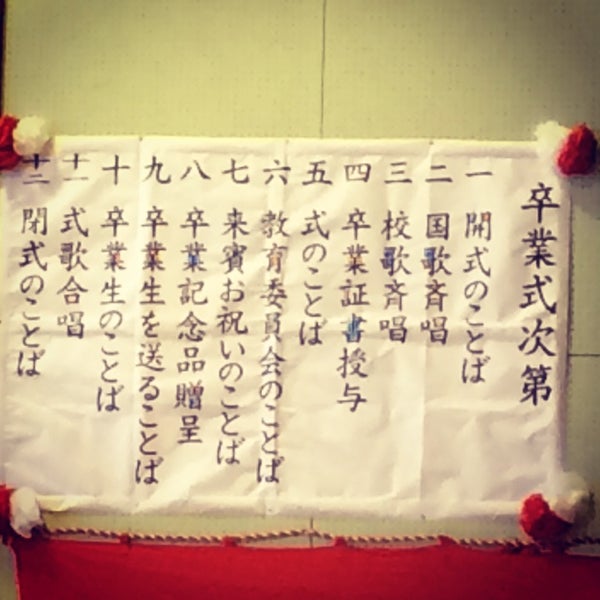 卒業式次第
一 開式のことば
二 国歌斉唱
三 校歌斉唱
四 卒業証書授与
五 式のことば
六 教育委員会のことば
七 来賓お祝いのことば
八 卒業記念品贈呈
九 卒業生を送ることば
十 卒業生のことば
十一 式歌合唱
十二 閉式のことば